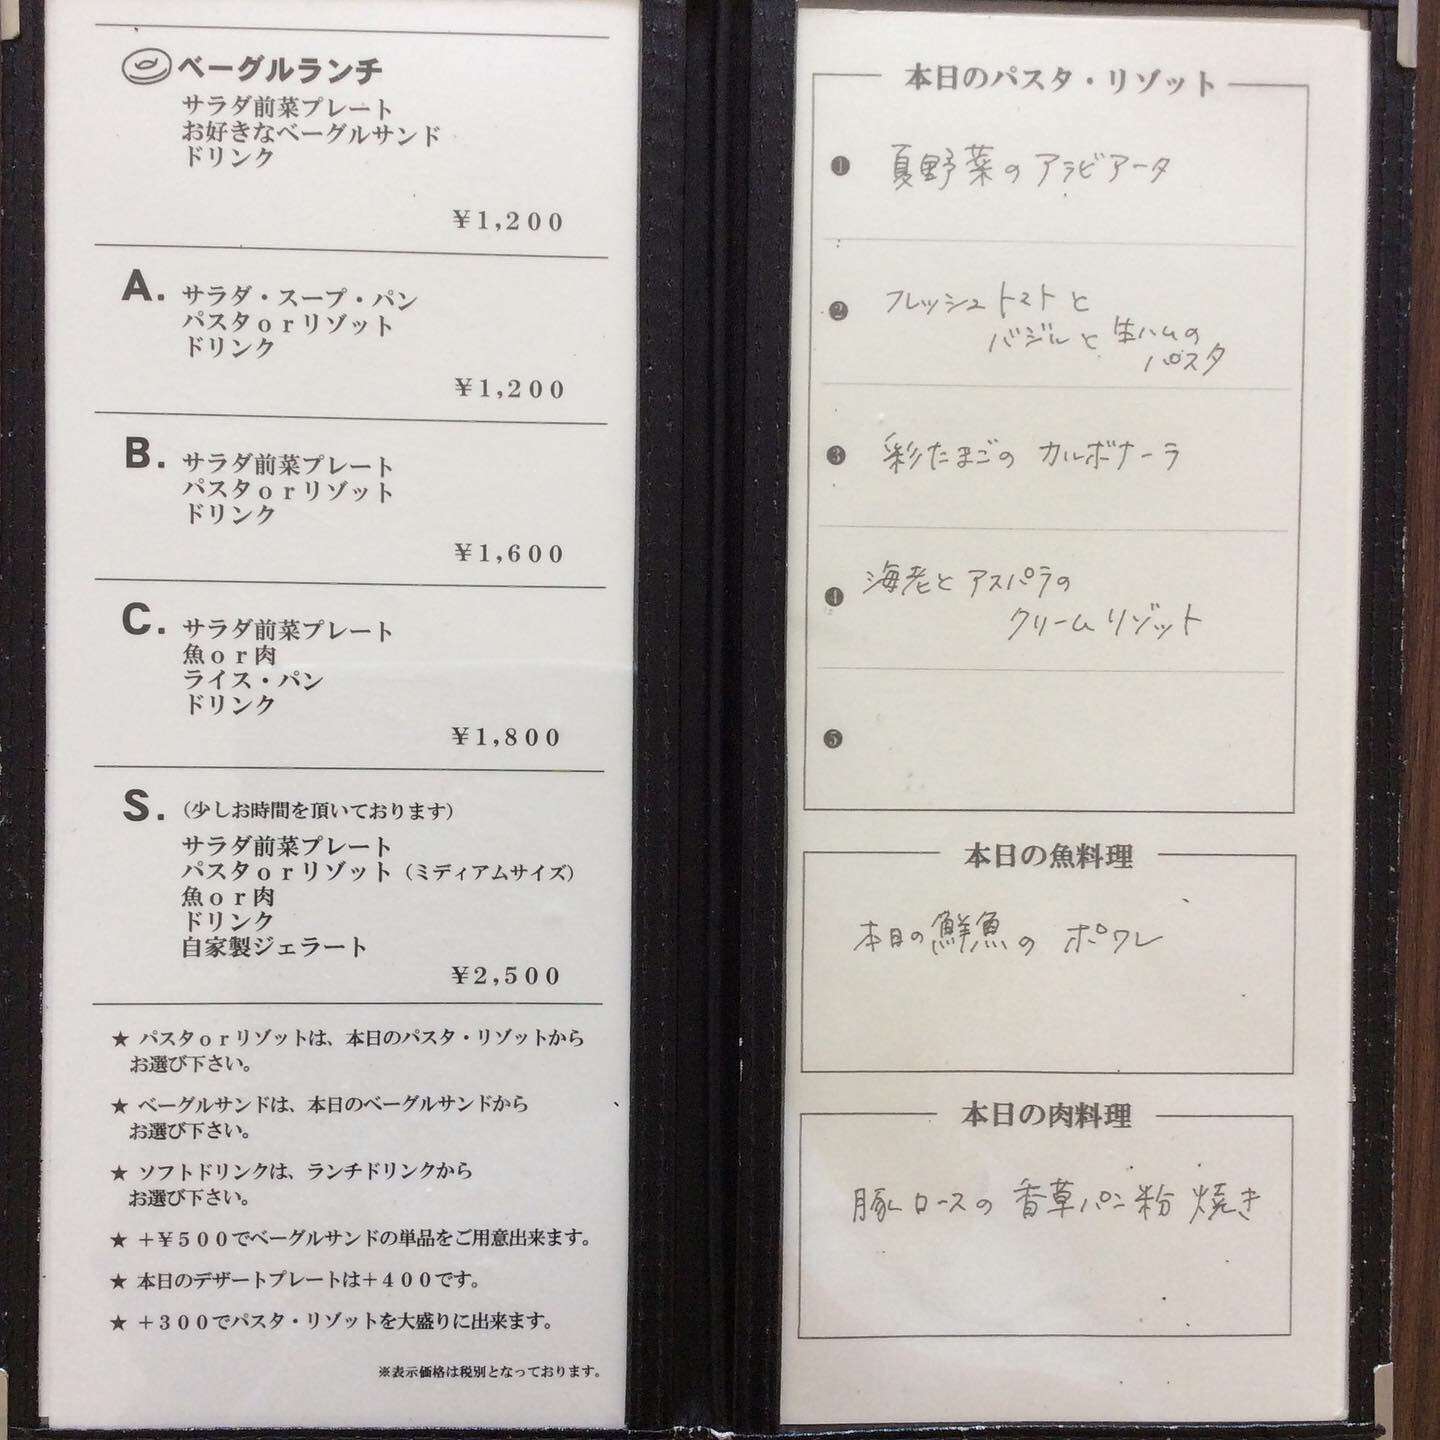 ベーグルランチ
サラダ前菜プレート
お好きなベーグルサンド
ドリンク
¥1,200
A. サラダ・スープ・パン
パスタorリゾット
ドリンク
¥1,200
B. サラダ前菜プレート
パスタorリゾット
ドリンク
¥1,600
C. サラダ前菜プレート
魚or肉
ライス・パン
ドリンク
¥1,800
S. (少しお時間を頂いております)
サラダ前菜プレート
パスタorリゾット(ミディアムサイズ)
魚or肉
ドリンク
自家製ジェラート
¥2,500
★ パスタorリゾットは、本日のパスタ・リゾットから
お選び下さい。
★ ベーグルサンドは、本日のベーグルサンドから
お選び下さい。
★ ソフトドリンクは、ランチドリンクから
お選び下さい。
★ +¥500でベーグルサンドの単品をご用意出来ます。
★ 本日のデザートプレートは+400です。
★ +300でパスタ・リゾットを大盛りに出来ます。
※表示価格は税別となっております。
本日のパスタ・リゾット
❶ 夏野菜のアラビアータ
❷ フレッシュトマトと
バジルと生ハムの
パスタ
❸ 彩たまごのカルボナーラ
❹ 海老とアスパラの
クリームリゾット
❺
本日の魚料理
本日の鮮魚のポワレ
本日の肉料理
豚ロースの香草パン粉焼き